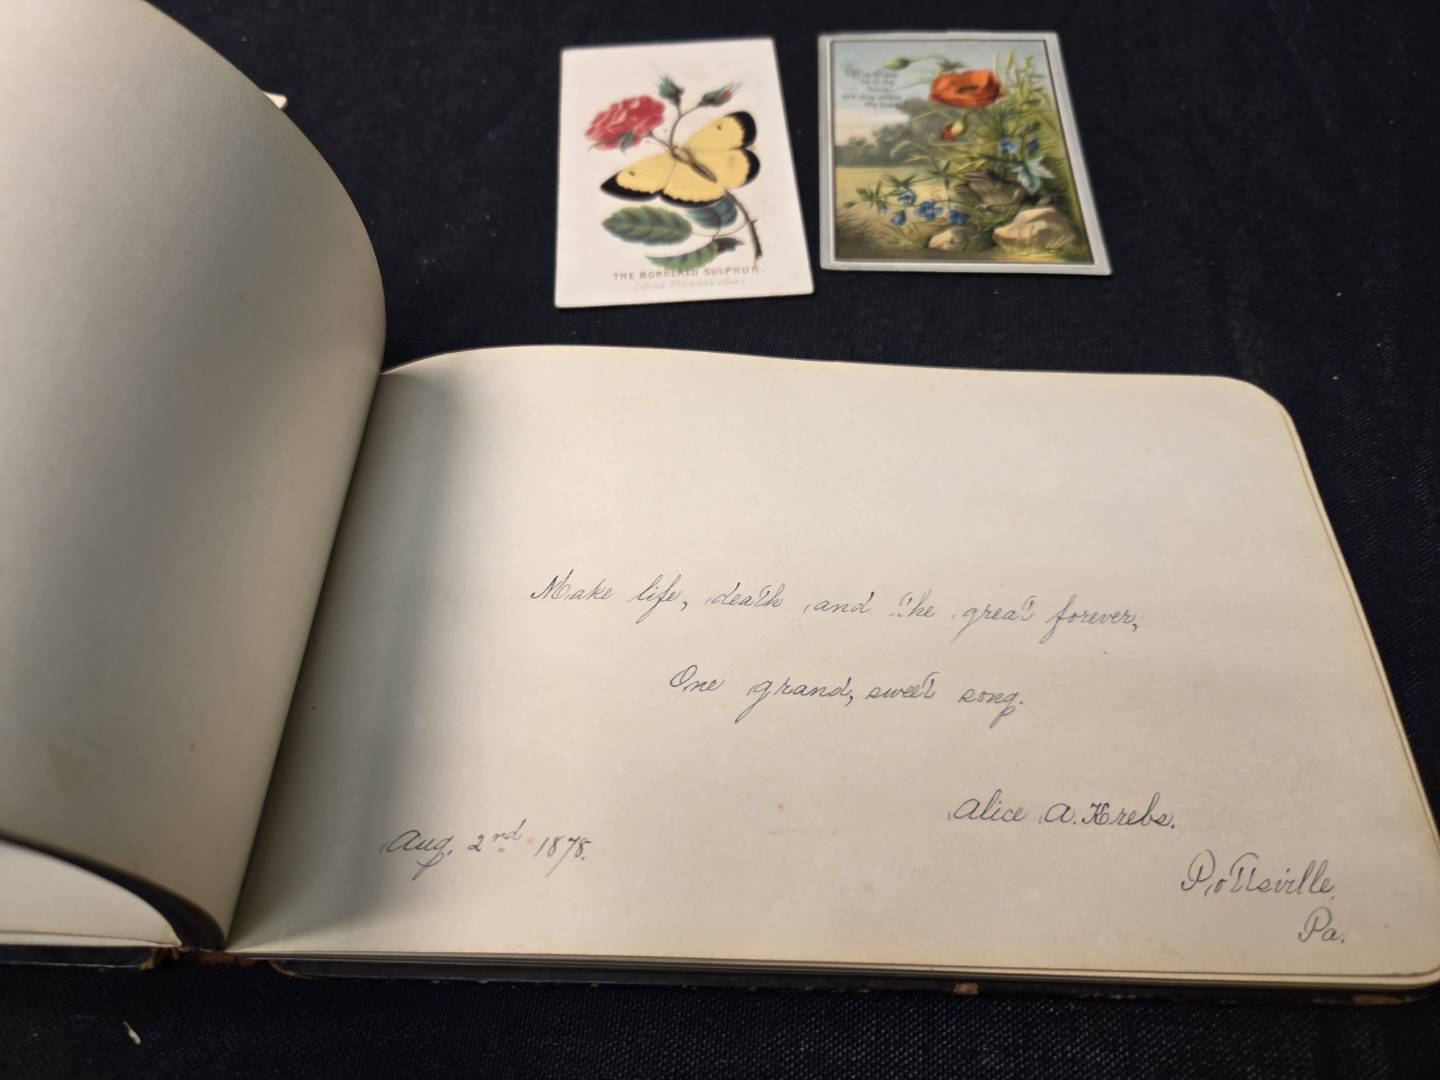 THE BORDERED SULPHUR.
Make life, death and the great forever,
One grand, sweet song.
Alice A. Krebs.
Aug. 2nd 1878.
Pottsville,
Pa.